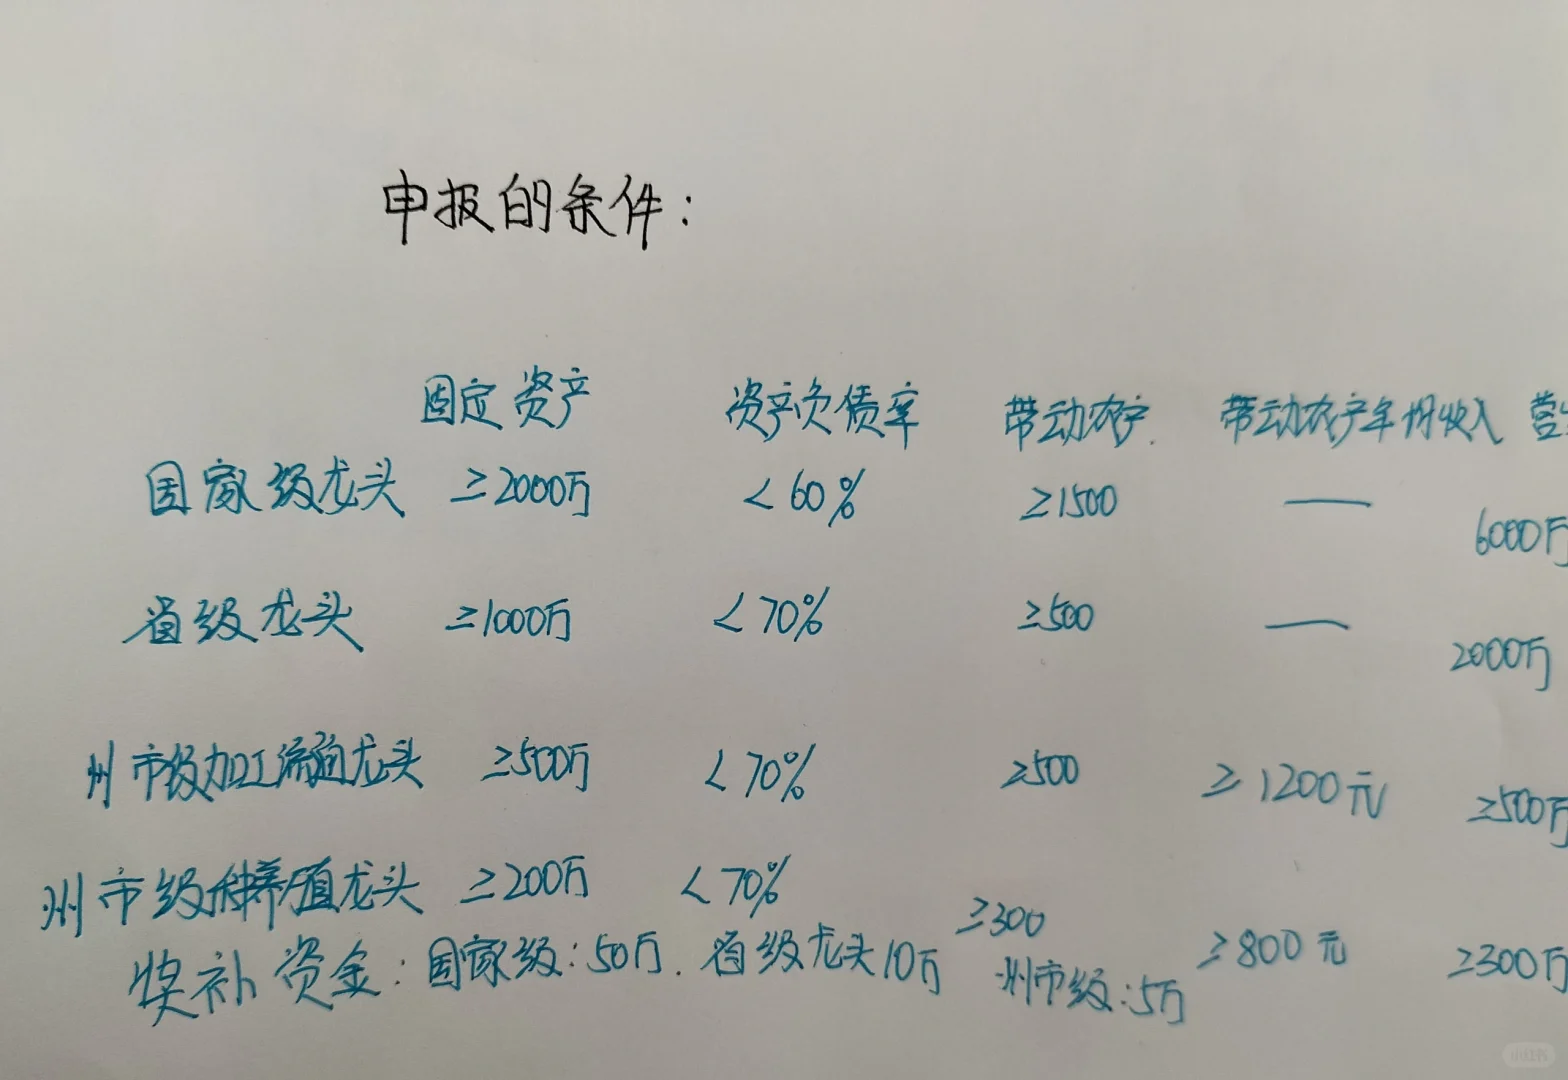 申报的条件：
固定资产 资产负债率 带动农户 带动农户年均收入 营
国家级龙头 ≥2000万 <60% ≥1500 — 6000万
省级龙头 ≥1000万 <70% ≥500 — 2000万
州市级加工流通龙头 ≥500万 <70% ≥500 ≥1200元 ≥500万
州市级种养殖龙头 ≥200万 <70% ≥300 ≥800元 ≥300万
奖补资金：国家级：50万. 省级龙头10万 州市级：5万
小红书